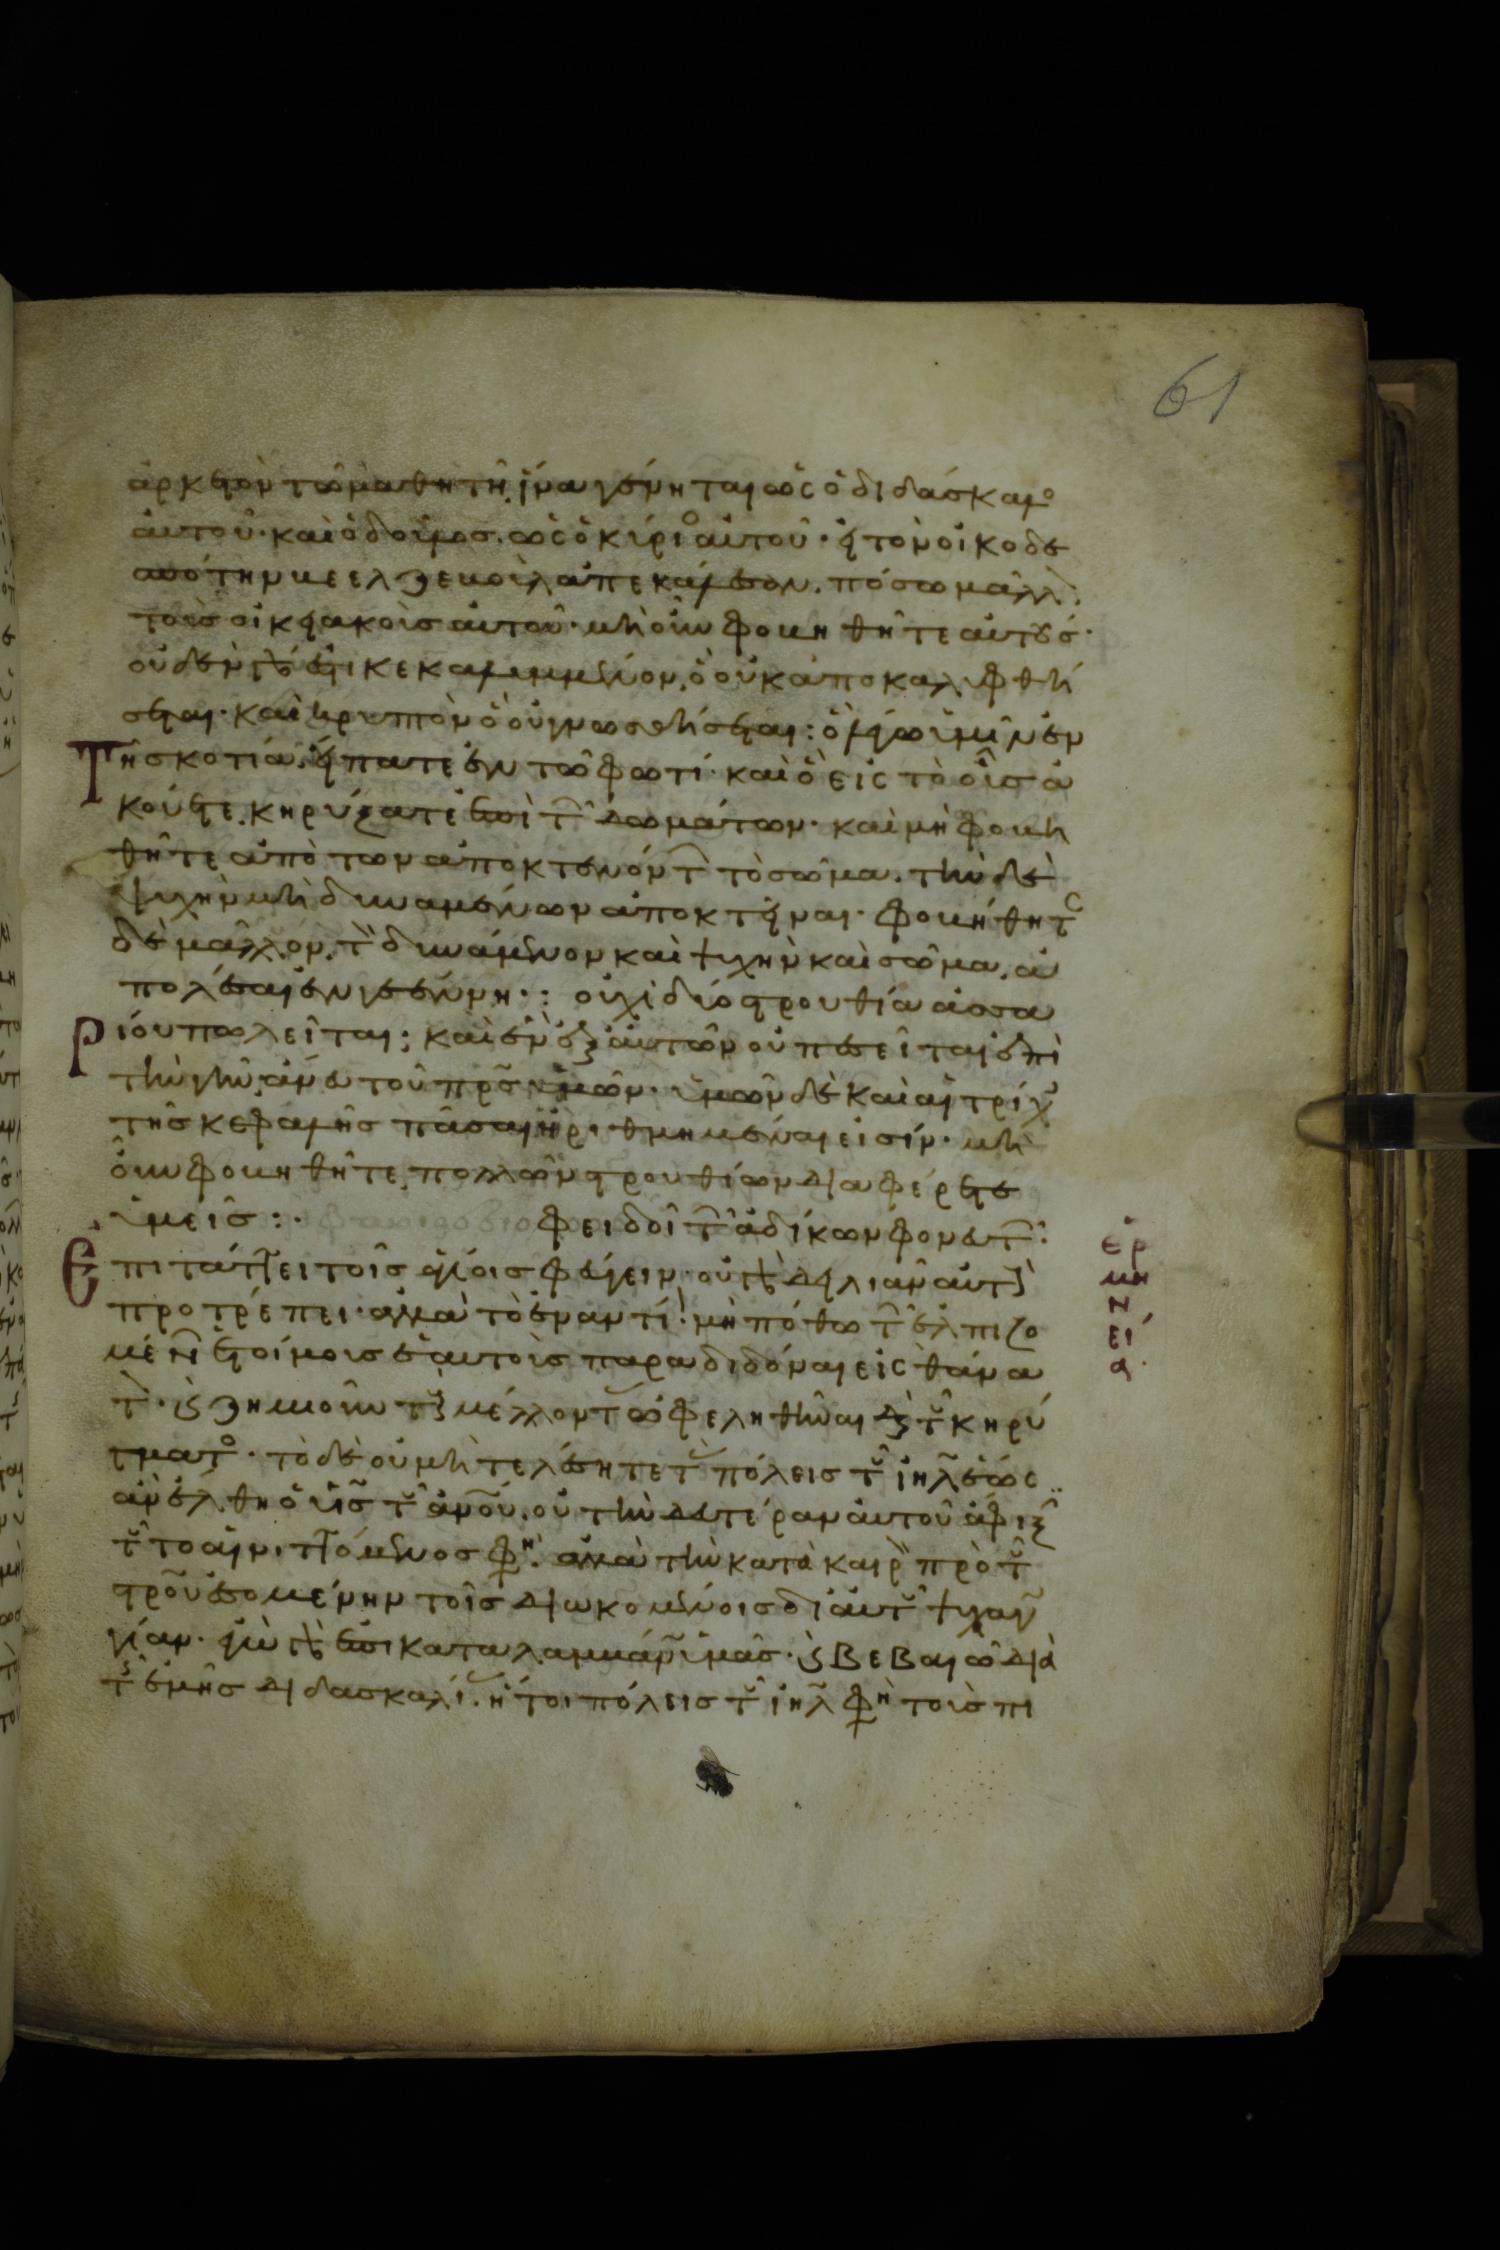 61
ἀρκετὸν τῶ μαθητῆ ἵνα γένηται ὡς ὁ διδάσκαλο
αὐτοῦ· καὶ ὁ δοῦλος ὡς ὁ κύριο αὐτοῦ· εἰ τὸν οἰκοδε
σπότην βεελζεβοὺλ ἀπεκάλεσαν. πόσω μᾶλλ
τοῖς οἰκειακοῖς αὐτοῦ· μὴ οὖν φοβηθῆτε αὐτούς·
οὐδὲν γάρ ἐστι κεκαλυμμένον, ὃ οὐκ ἀποκαλυφθή
σεται· καὶ κρυπτὸν ὃ οὐ γνωσθήσεται: ὃ λέγω ὑμῖν ἐν
Τῆ σκοτία. εἴπατε ἐν τῶ φωτί· καὶ ὃ εἰς τὸ οὖς ἀ
κούετε, κηρύξατε ἐπὶ τῶν δωμάτων· καὶ μὴ φοβη
θῆτε ἀπὸ τῶν ἀποκτενόντ τὸ σῶμα. τὴν δὲ
ψυχὴν μὴ δυναμένων ἀποκτεῖναι· φοβήθητ
δὲ μᾶλλον. τὸν δυνάμενον καὶ ψυχὴν καὶ σῶμα, ἀ
πολέσαι ἐν γεέννη·: οὐχὶ δύο στρουθία ἀσσα
Ρίου πωλεῖται; καὶ ἓν ἐξ αὐτῶν οὐ πεσεῖται ἐπὶ
τὴν γῆν ἄνευ τοῦ πρς ὑμῶν· ὑμῶν δὲ καὶ αἱ τρίχ
τῆς κεφαλῆς πᾶσαι ἠριθμημέναι εἰσίν· μὴ
οὖν φοβηθῆτε, πολλῶν στρουθίων διαφέρετε
ὑμεῖς:· φειδοῖ τῶν ἀδίκων φονευτ
Ἐπιτάττει τοῖς ἁγίοις φεύγειν. οὐ
προτρέπει· ἀλλὰ τὸ ἐναντί· μὴ πόθω τῶν ἐλπιζο
μέν ἑτοίμοις ἑαυτοὺς παραδιδόναι εἰς θάνα
τ· καὶ ζημιοῦν τοὺς μέλλοντ ὠφεληθῆναι διὰ τοῦ κηρύ
γματο· τὸ δὲ οὐ μὴ τελέσητε τὰς πόλεις τοῦ ιηλ ἕως
ἂν ἔλθη ὁ υἱς τοῦ ἀνου. οὐ τὴν δευτέραν αὐτοῦ ἄφιξ
κατὰ καιρὸν πρὸ τοῦ
στρου ἐσομένην τοῖς διωκομένοις δι αὐτοῦ ψυχαγ
γίαν. καταλαμβάνω ὑμᾶς· καὶ βεβαιῶ διὰ
τῆς ἐμῆς διδασκαλί. ἤτοι πόλεις τοῦ ιηλ φη τοὺς πι
ἑρ
μη
ν
εί
α·